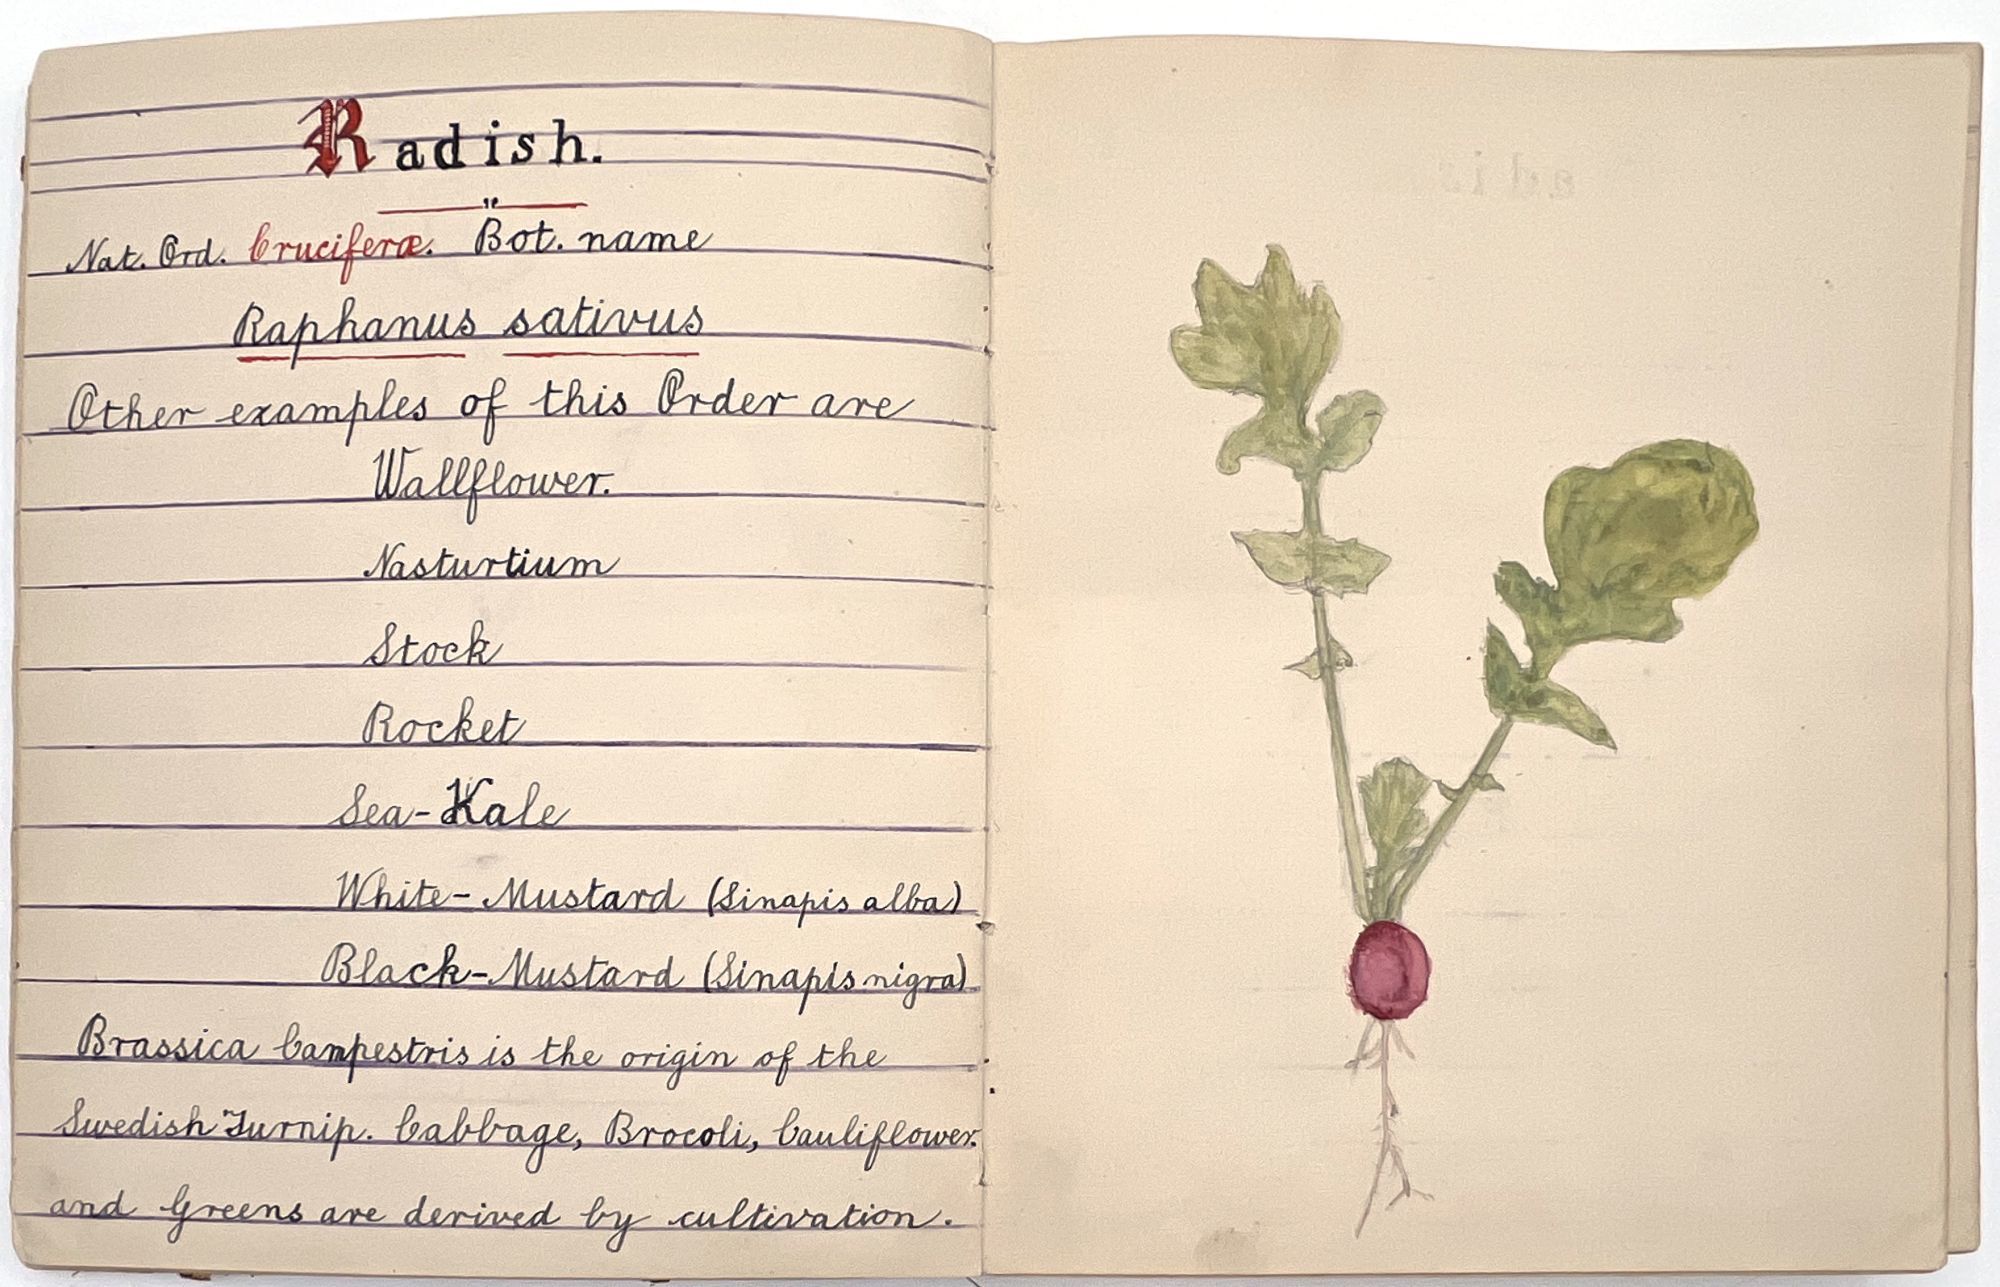 Radish.
Nat. Ord. Cruciferæ. Bot. name
Raphanus sativus
Other examples of this Order are
Wallflower.
Nasturtium
Stock
Rocket
Sea-Kale
White-Mustard (Sinapis alba)
Black-Mustard (Sinapis nigra)
Brassica Campestris is the origin of the
Swedish Turnip. Cabbage, Brocoli, Cauliflower.
and Greens are derived by cultivation.